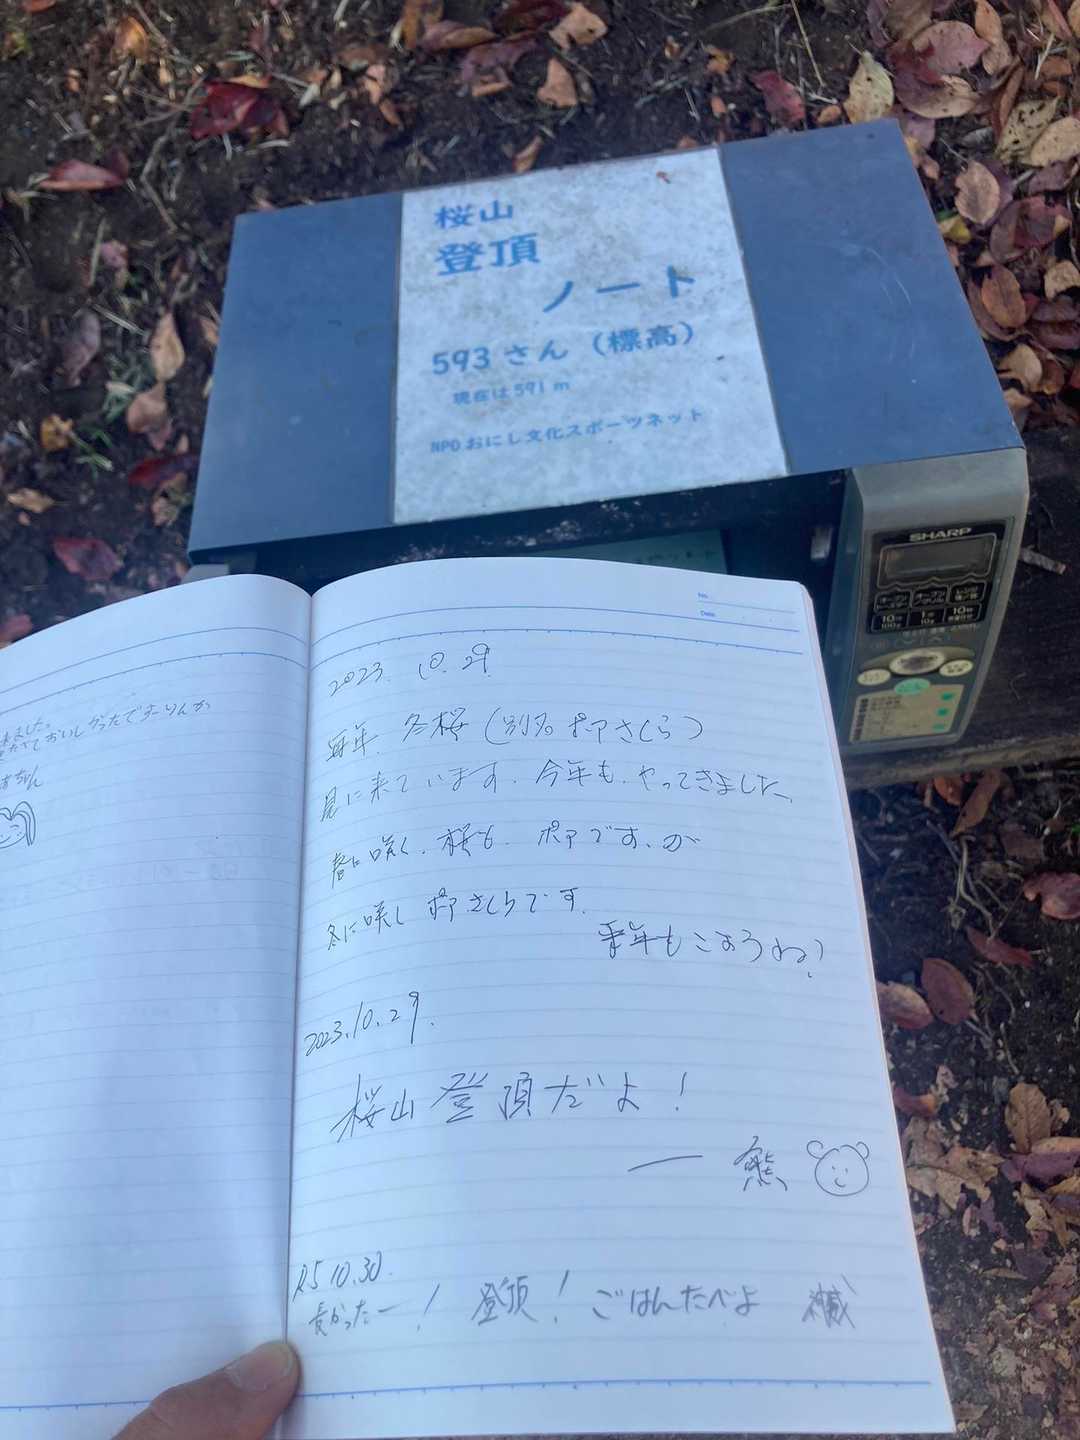 桜山
登頂
ノート
593さん（標高）
現在は591m
NPOおにし文化スポーツネット
SHARP
No.
Date
2023. 10. 29
毎年、冬桜（別名 ポアさくら）
見に来ています。今年も、やってきました。
春に咲く、桜も、ポアですが
冬に咲し ポアさくらです。
来年もこようね！
2023.10.29.
桜山登頂だよ！
一熊
R5 10.30.
長かったー！ 登頂！ ごはんたべよ
ました。
ておいしかったですーりんか
ちゃん